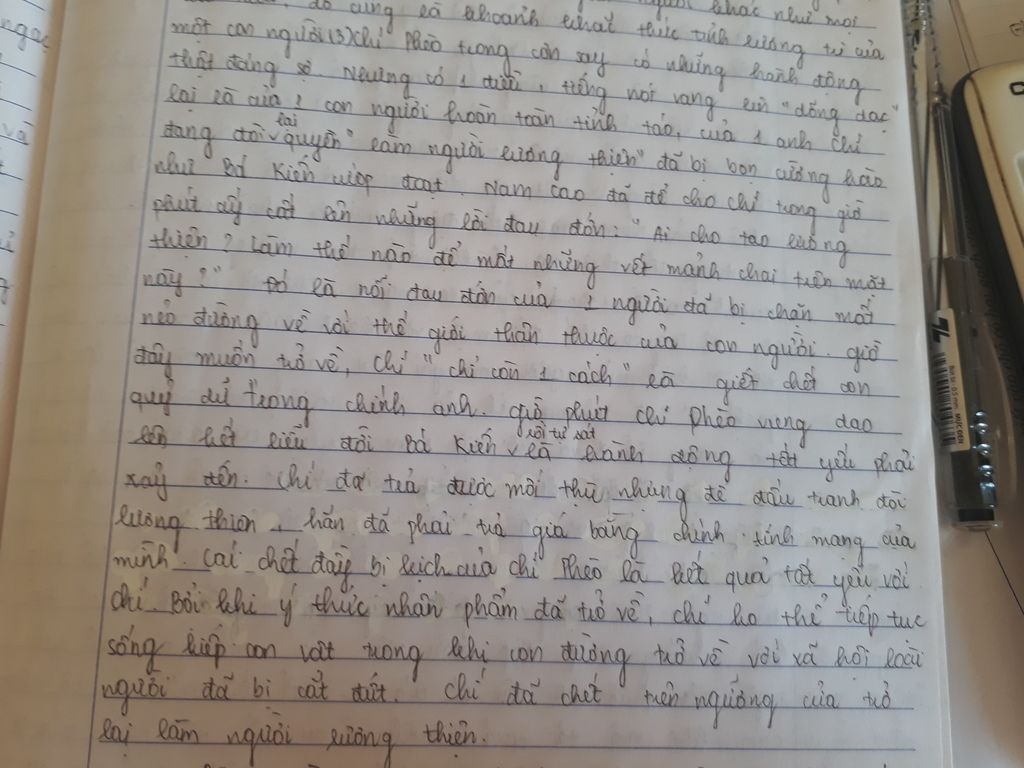 đó cũng là khoảnh khắc thức tỉnh lương tri của
một con người (3) Chí Phèo trong cơn say có những hành động
thật đáng sợ. Nhưng có 1 điều, tiếng nói vang lên "dõng dạc"
lại là của 1 con người hoàn toàn tỉnh táo, của 1 anh Chí
đang đòi lại quyền "làm người lương thiện" đã bị bọn cường hào
như Bá Kiến cướp đoạt. Nam Cao đã để cho Chí trong giờ
phút ấy cất lên những lời đau đớn: "Ai cho tao lương
thiện? Làm thế nào để mất những vết mảnh chai trên mặt
này?" Đó là nỗi đau đớn của 1 người đã bị chặn mất
nẻo đường về với thế giới thân thuộc của con người. giờ
đây muốn trở về, Chí "chỉ còn 1 cách" là giết chết con
quỷ dữ trong chính anh. Giờ phút Chí Phèo vung dao
lên kết liễu đời Bá Kiến rồi tự sát là hành động tất yếu phải
xảy đến. Chí đã trả được mối thù nhưng để đấu tranh đòi
lương thiện, hắn đã phải trả giá bằng chính tính mạng của
mình. Cái chết đầy bi kịch của Chí Phèo là kết quả tất yếu với
Chí. Bởi khi ý thức nhân phẩm đã trở về, Chí ko thể tiếp tục
sống kiếp con vật trong khi con đường trở về với xã hội loài
người đã bị cắt đứt. Chí đã chết trên ngưỡng cửa trở
lại làm người lương thiện.